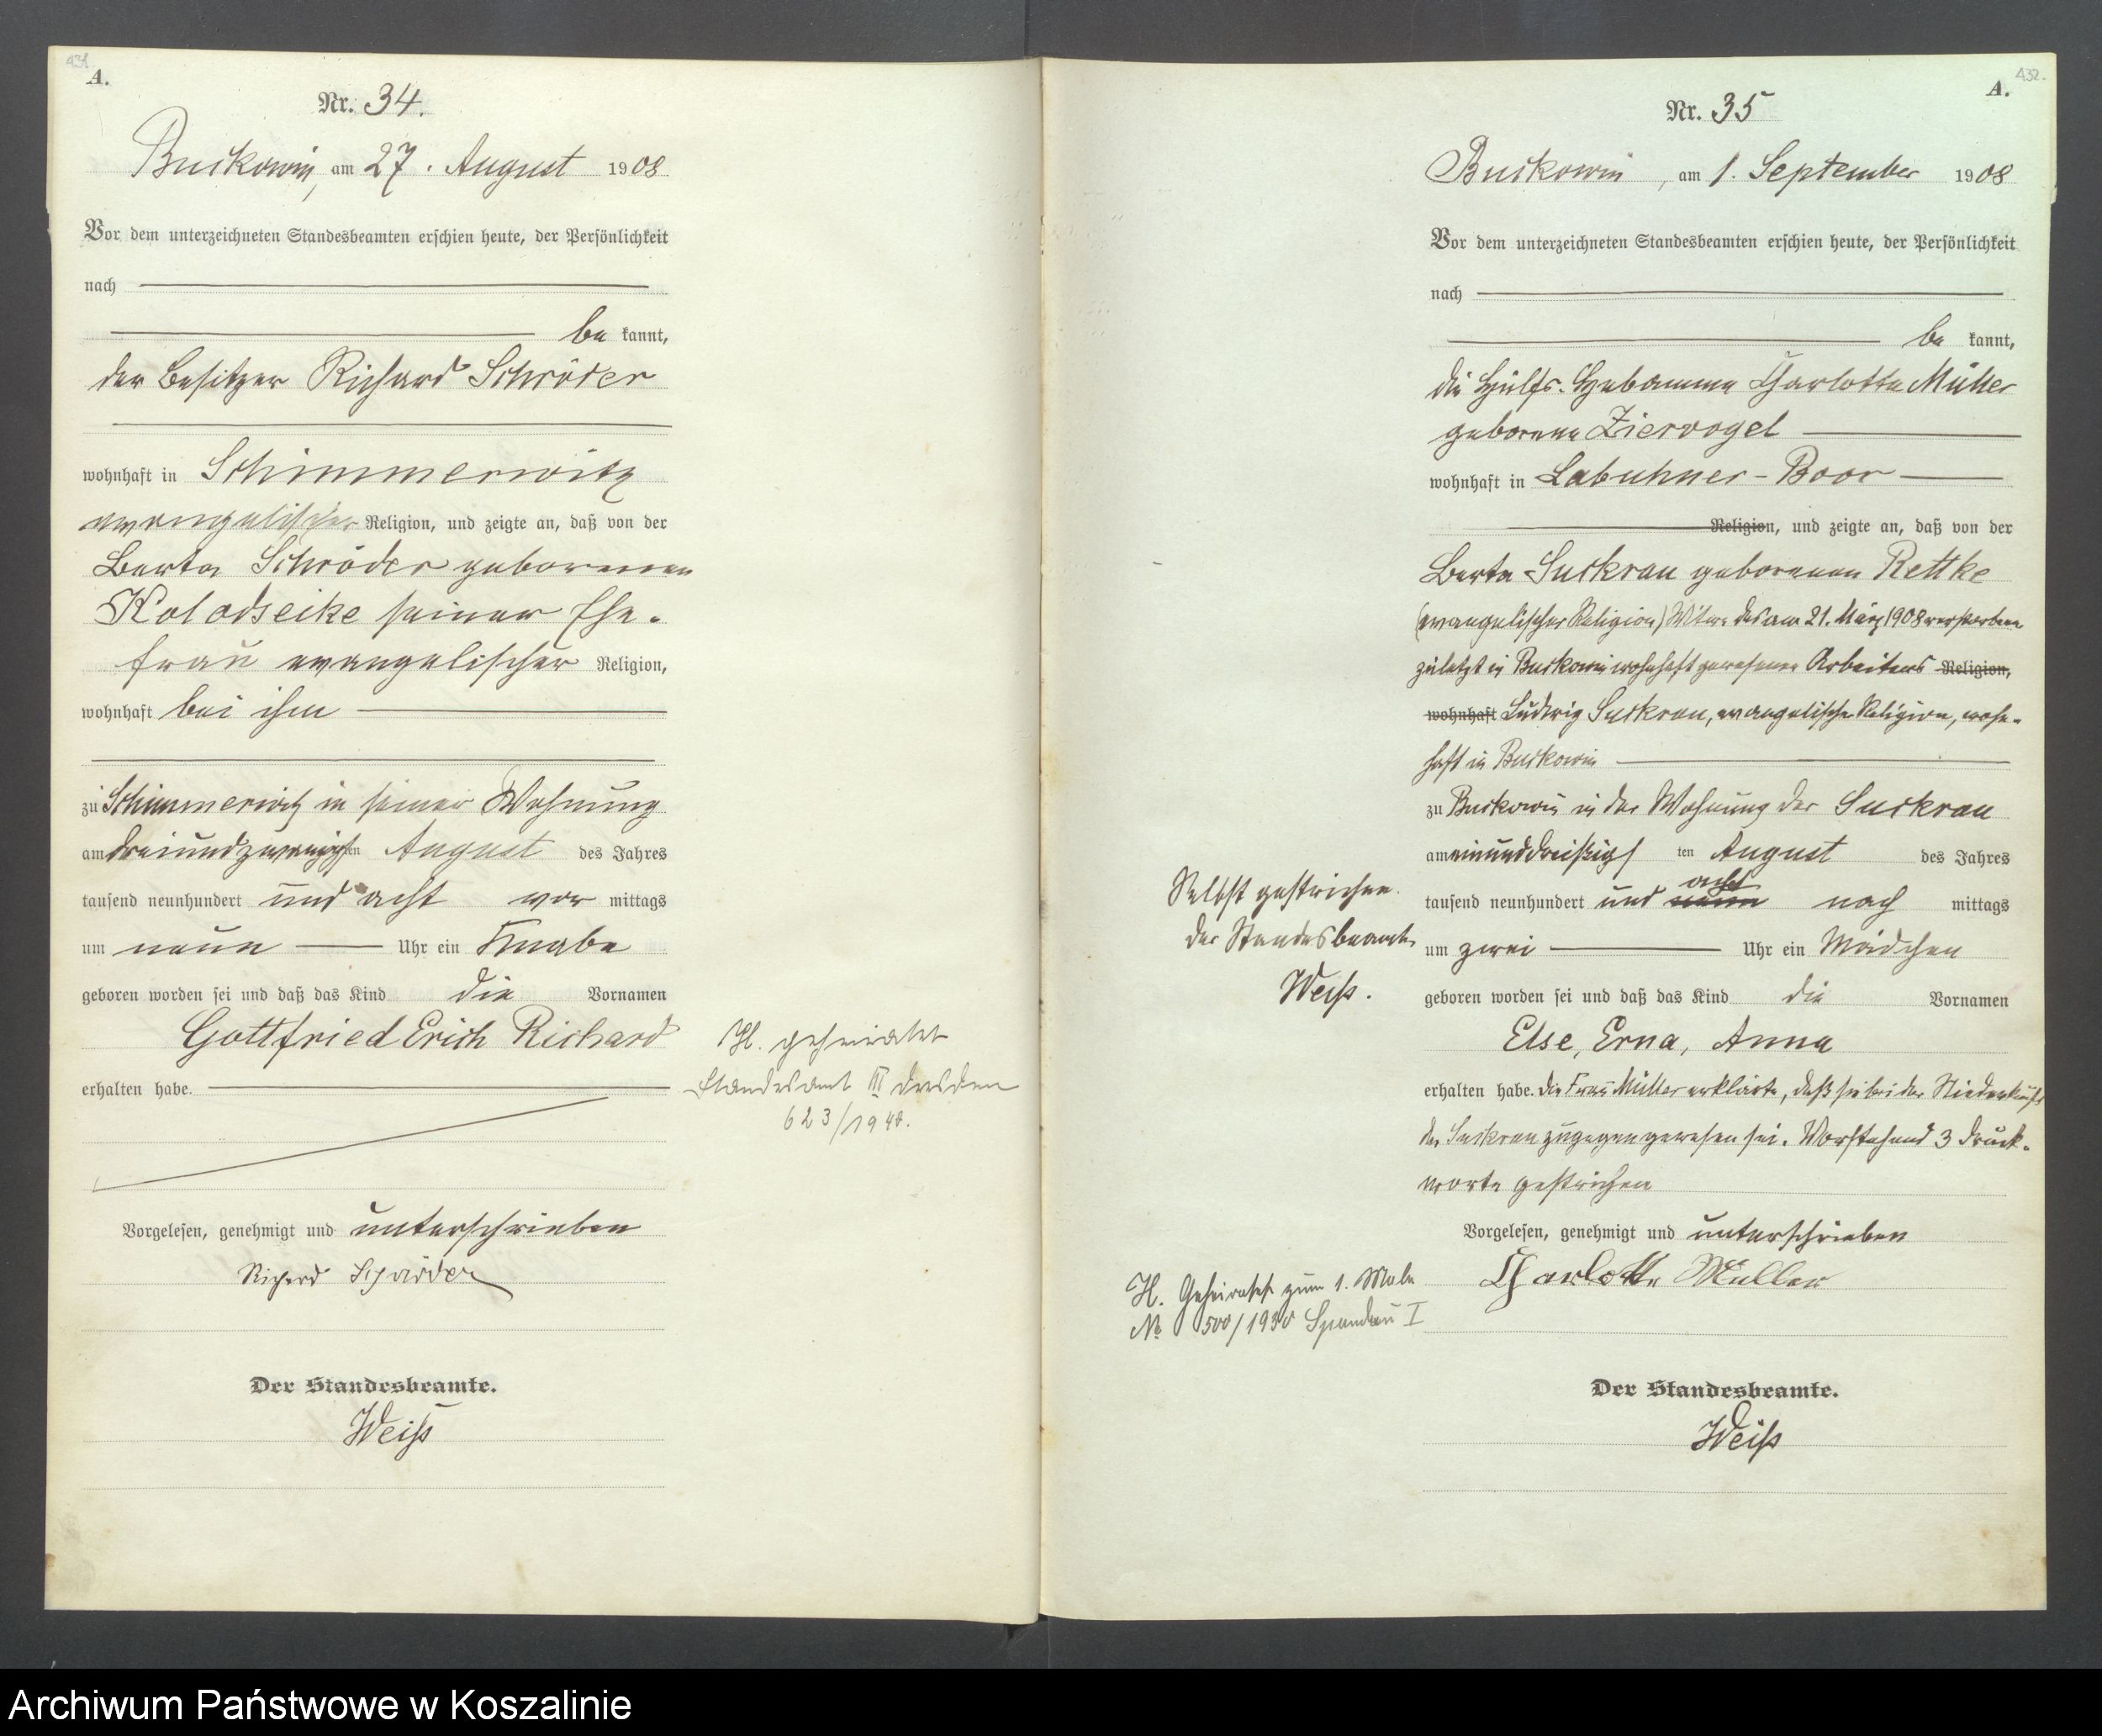 431
A.
Nr. 34.
Buckowin, am 27. August 1908
Vor dem unterzeichneten Standesbeamten erschien heute, der Persönlichkeit
nach
be kannt,
der Besitzer Richard Schröder
wohnhaft in Schimmerwitz
evangelischer Religion, und zeigte an, daß von der
Berta Schröder geborenen
Kolodseike seiner Ehe-
frau evangelischer Religion,
wohnhaft bei ihm
zu Schimmerwitz in seiner Wohnung
am dreiundzwanzigsten August des Jahres
tausend neunhundert und acht vor mittags
um neun Uhr ein Knabe
geboren worden sei und daß das Kind die Vornamen
Gottfried Erich Richard
erhalten habe.
H. geheiratet
Standesamt III Dresden
623/1940.
Vorgelesen, genehmigt und unterschrieben
Richard Schröder
Der Standesbeamte.
Weiß
432.
A.
Nr. 35
Buckowin, am 1. September 1908
Vor dem unterzeichneten Standesbeamten erschien heute, der Persönlichkeit
nach
be kannt,
die Hülfs-Hebamme Charlotte Müller
geborene Ziervogel
wohnhaft in Labuhner-Boor
Religion, und zeigte an, daß von der
Berta Suckrau geborenen Rettke
(evangelischer Religion) Witwe des am 21. März 1908 verstorbenen
zuletzt in Buckowin wohnhaft gewesenen Arbeiters Religion,
wohnhaft Ludwig Suckrau, evangelischer Religion, wohn-
haft in Buckowin
zu Buckowin in der Wohnung der Suckrau
am einunddreißigsten August des Jahres
acht
tausend neunhundert und neun nach mittags
um zwei Uhr ein Mädchen
geboren worden sei und daß das Kind die Vornamen
Else, Erna, Anna
erhalten habe. Die Frau Müller erklärte, daß sie bei der Niederkunft
der Suckrau zugegen gewesen sei. Vorstehend 3 Druck-
worte gestrichen
Selbst gestrichen.
Der Standesbeamte
Weiß.
Vorgelesen, genehmigt und unterschrieben
Charlotte Müller
H. Geheiratet zum 1. Male
No 500/1930 Spandau I
Der Standesbeamte.
Weiß
Archiwum Państwowe w Koszalinie